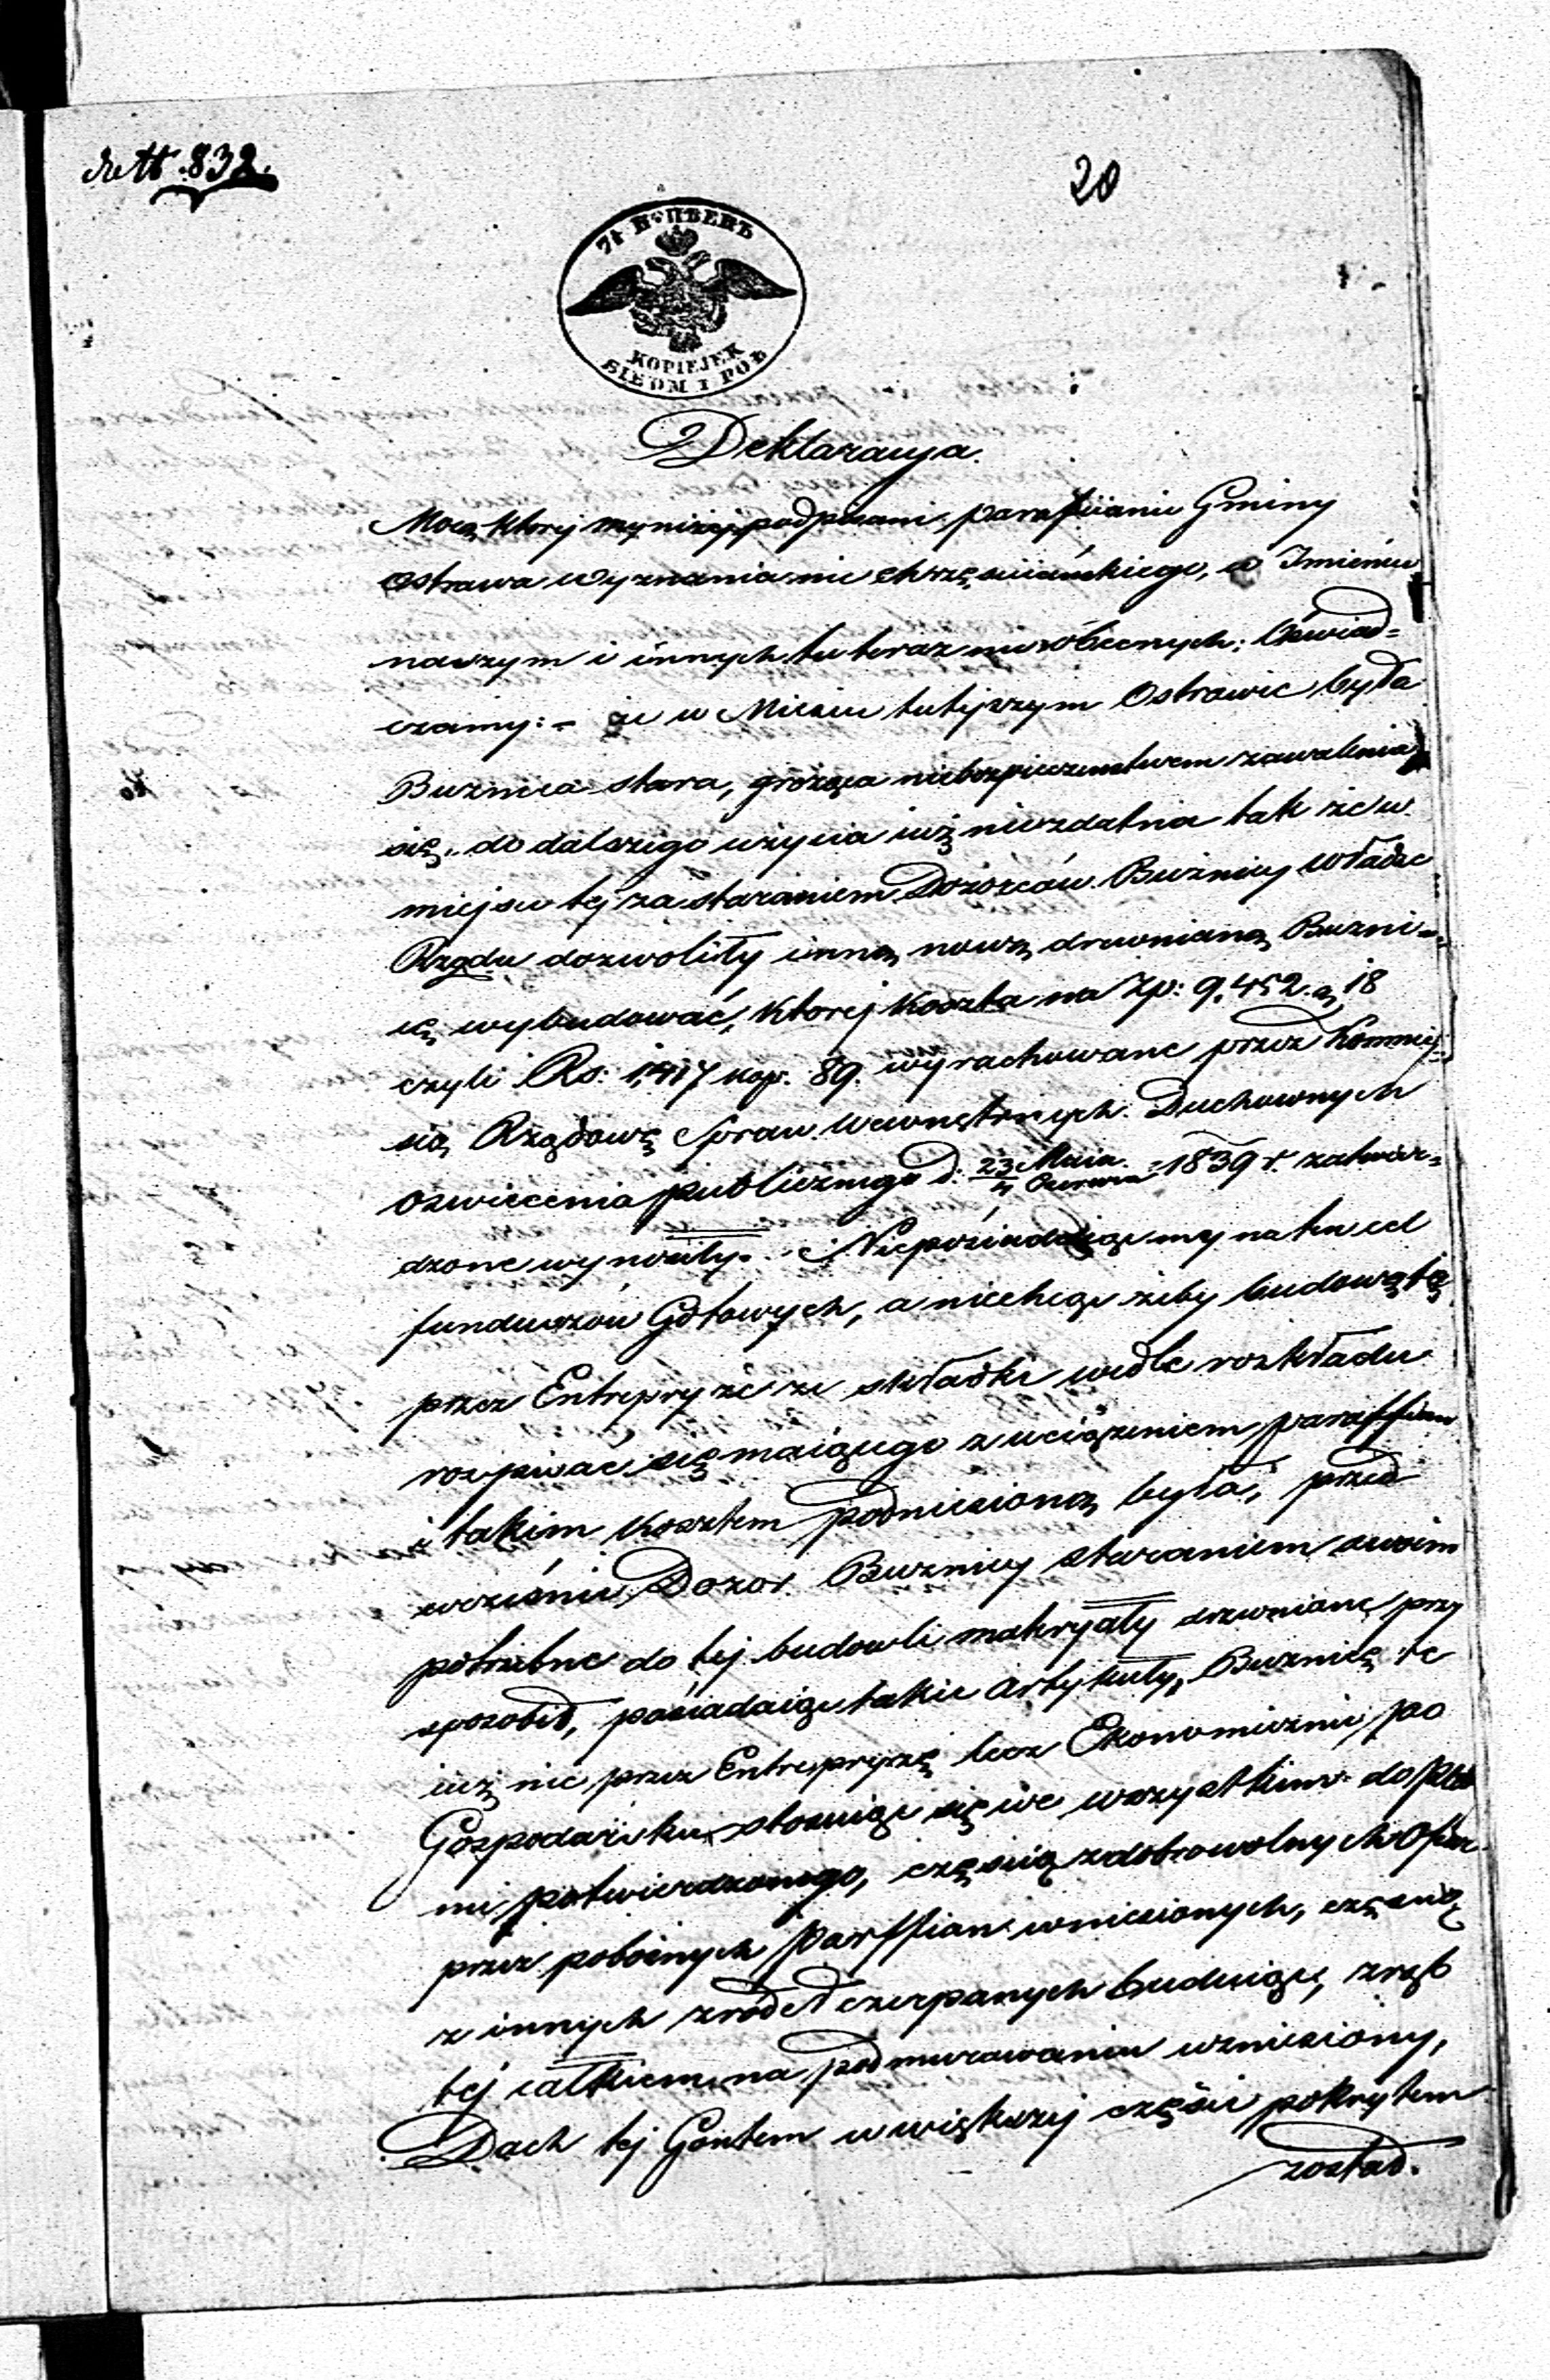 832.
20
7½ КОПѢЕКЪ
KOPIEJEK
SIEDM I POŁ
Deklaracya.
Mocą ktorej my niżej podpisani parafiianie Gminy
Ostrawa wyznania nie chrześciańskiego, w Imieniu
naszym i innych tu teraz nie obecnych; Oświad=
czamy: - że w Mieście tutejszym Ostrowie była
Bużnica stara, grożąca niebezpieczenstwem zawalenia
się, do dalszego użycia iuż niezdatna tak że w
miejscu tej za staraniem Dozorców Bużnicy Władze
Rządu dozwoliły inną nową drewnianą Bużni=
cę wybudować, ktorej koszta na Zp: 9,452. g 18
czyli Rs: 1,417 kop. 89. wyrachowane przez Kommis=
sią Rządową Spraw Wewnętrznych Duchownych
Oswiecenia publicznego d. 23 Maia / 4 Czerwca 1839 r. zatwier=
dzone wynosiły. - Nieposiadaiąc my na ten cel
funduszów Gotowych, a niechcąc żeby budową tą
przez Entrepryzę ze składki wedle rozkładu
rozpisać się maiącego z uciążeniem paraffian
i takim kosztem podniesioną była, przed
wcześnie Dozor Bużnicy staraniem swoim
potrzebne do tej budowli materyały drzewniane przy
sposobił, posiadaiąc takie artykuły, Bużnicę te
iuż nie przez Entrepryzę lecz Ekonomicznie po
Gospodarsku stosuiąc się we wszystkiem do
potwierdzonego, częścią z dobrowolnych Ofiar
przez pobożnych Parffian wniesionych, częścią
z innych zródeł czerpanych buduiąc, zrąb
tej całkiem na podmurowaniu wzniesiony,
Dach tej Gontem w większej części pokrytem
został.